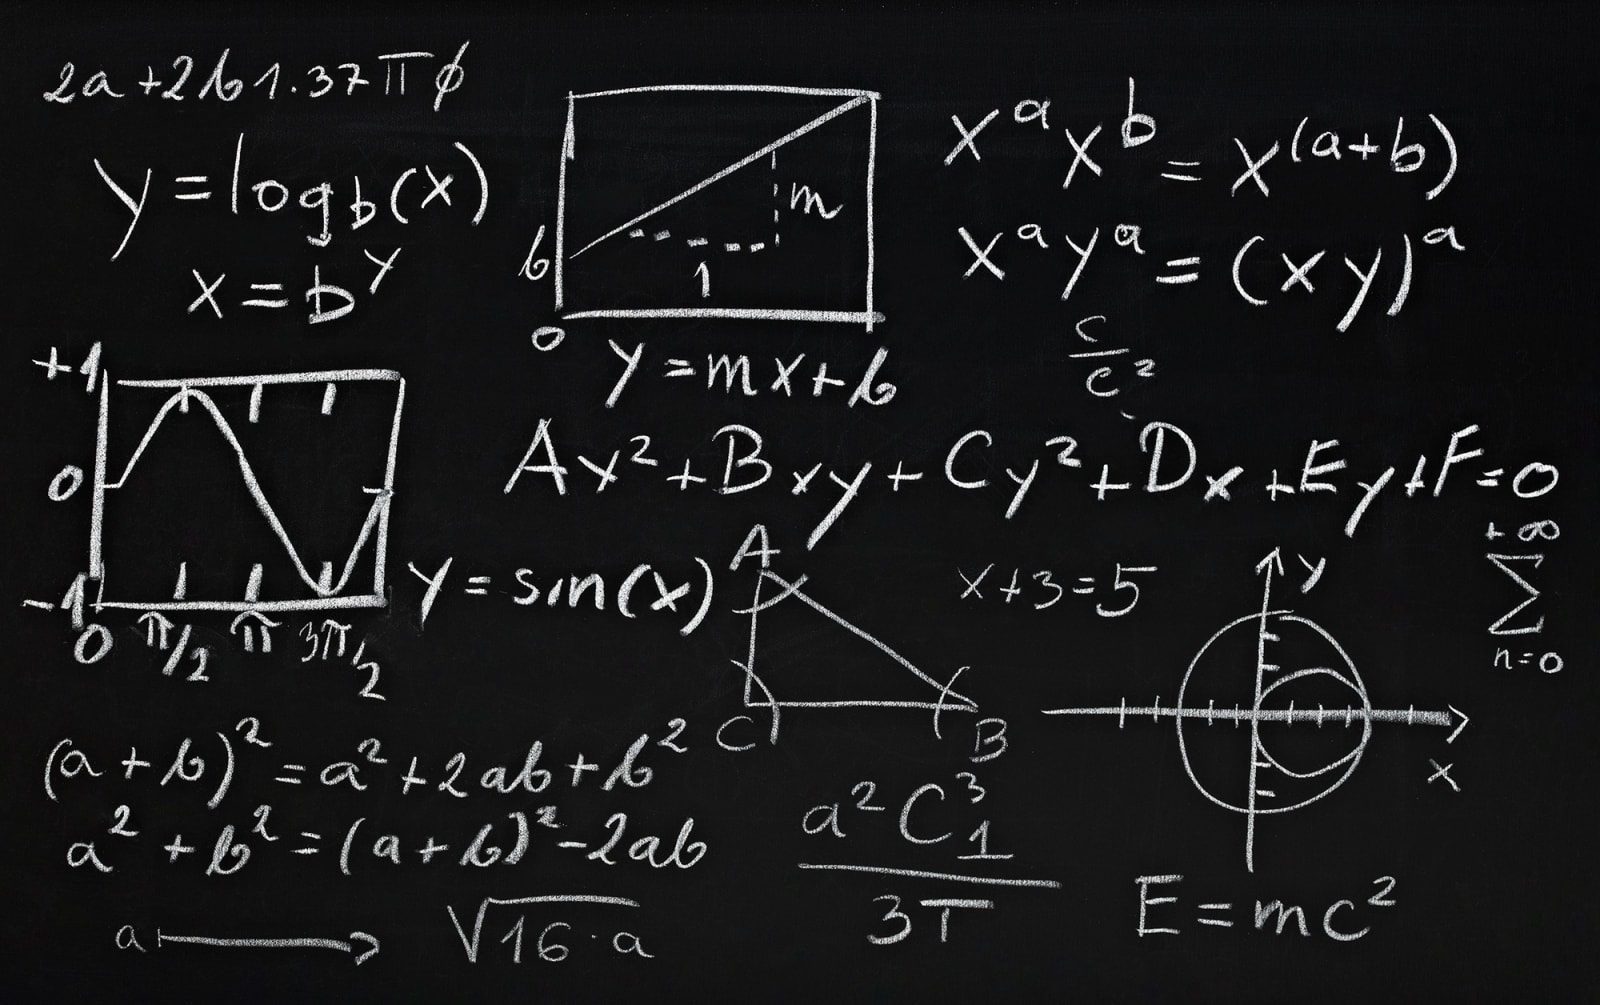 2a+2b1.37πφ
y=log_b(x)
x=b^y
b
m
1
0
y=mx+b
x^a x^b = x^(a+b)
x^a y^a = (xy)^a
c/c^2
+1
0
-1
0 π/2 π 3π/2
y=sin(x)
Ax²+Bxy+Cy²+Dx+Ey+F=0
A
C
B
x+3=5
y
x
+∞
Σ
n=0
(a+b)²=a²+2ab+b²
a²+b²=(a+b)²-2ab
a ⟼
√16·a
a²C³₁
3T
E=mc²